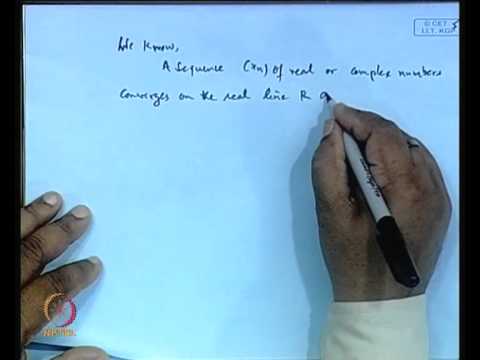 We know,
A sequence (xn) of real or complex numbers
converges on the real line R o
© CET
I.I.T. KGP
NPTEL